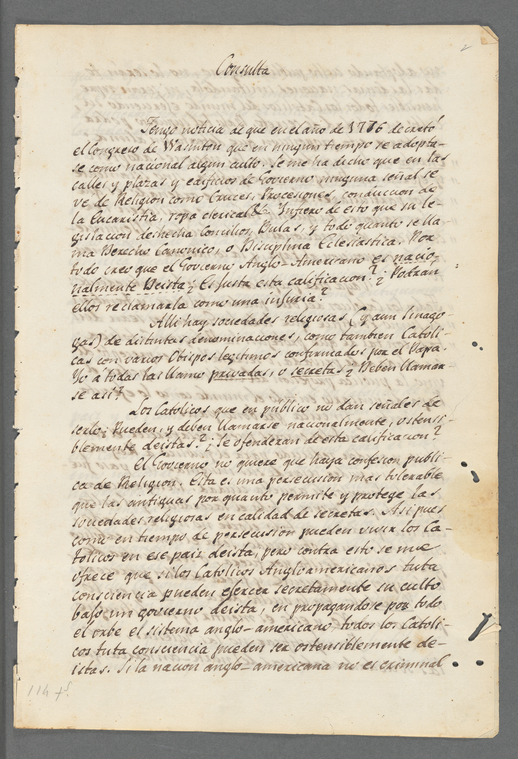 Consulta
Tengo noticia de que en el año de 1776 decretó
el Congreso de Wasinton que en ningun tiempo se adopta-
se como nacional algun culto. Se me ha dicho que en las
calles y plazas y edificios de Govierno ninguna señal se
ve de Religion como Cruces, Procesiones, conduccion de
la Eucaristia, ropa clerical &. Infiero de esto que su le-
gislacion deshecha Concilios, Bulas, y todo quanto se lla-
ma Derecho Canonico, o Disciplina Eclesiastica. Por
todo creo que el Govierno Anglo-Americano es nacio-
nalmente Deista ¿Es justa esta calificacion? ¿Podran
ellos reclamarla como una injuria?
Alli hay sociedades religiosas (y aun Sinago-
gas) de distintas denominaciones, como tambien Catoli-
cas con varios Obispos legitimos confirmados por el Papa.
Yo á todas las llamo privadas, o secretas ¿Deben llamar-
se asi?
Los Catolicos que en publico no dan señales de
serlo ¿Pueden, y deben llamarse nacionalmente, u ostensi-
blemente deistas? ¿Se ofenderan de esta calificacion?
El Govierno no quiere que haya confesion publi-
ca de Religion. Esta es una persecusion mas tolerable
que las antiguas por quanto permite y protege las
sociedades religiosas en calidad de secretas. Asi pues
como en tiempo de persecusion pueden vivir los Ca-
tolicos en ese pais deista, pero contra esto se me
ofrece que si los Catolicos Angloamericanos tuta
consciencia pueden ejercer secretamente su culto
bajo un govierno deista, en propagandose por todo
el orbe el sistema anglo-americano todos los Catoli-
cos tuta consciencia pueden ser ostensiblemente de-
istas. Si la nacion anglo-americana no es criminal